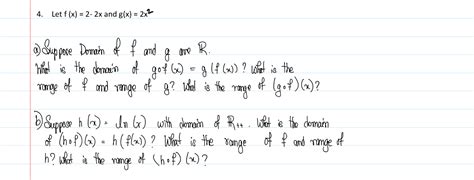 4. Let f (x) = 2- 2x and g(x) = 2x²
a) Suppose Domain of f and g are ℝ.
What is the domain of g∘f(x) = g(f(x))? What is the
range of f and range of g? What is the range of (g∘f)(x)?
b) Suppose h(x) = ln(x) with domain of ℝ₊₊. What is the domain
of (h∘f)(x) = h(f(x))? What is the range of f and range of
h? What is the range of (h∘f)(x)?